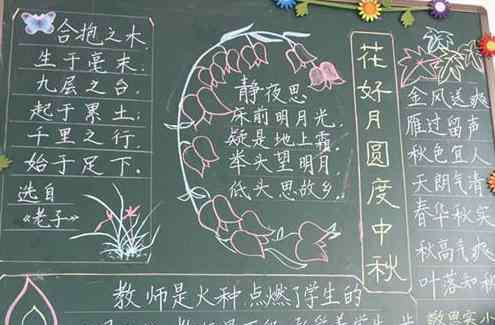 合抱之木,
生于毫末.
九层之台,
起于累土;
千里之行,
始于足下.
选自
《老子》
静夜思
床前明月光,
疑是地上霜.
举头望明月,
低头思故乡.
花好月圆度中秋
金风送爽
雁过留声
秋色宜人
天朗气清
春华秋实
秋高气爽
叶落知秋
教师是火种,点燃了学生的